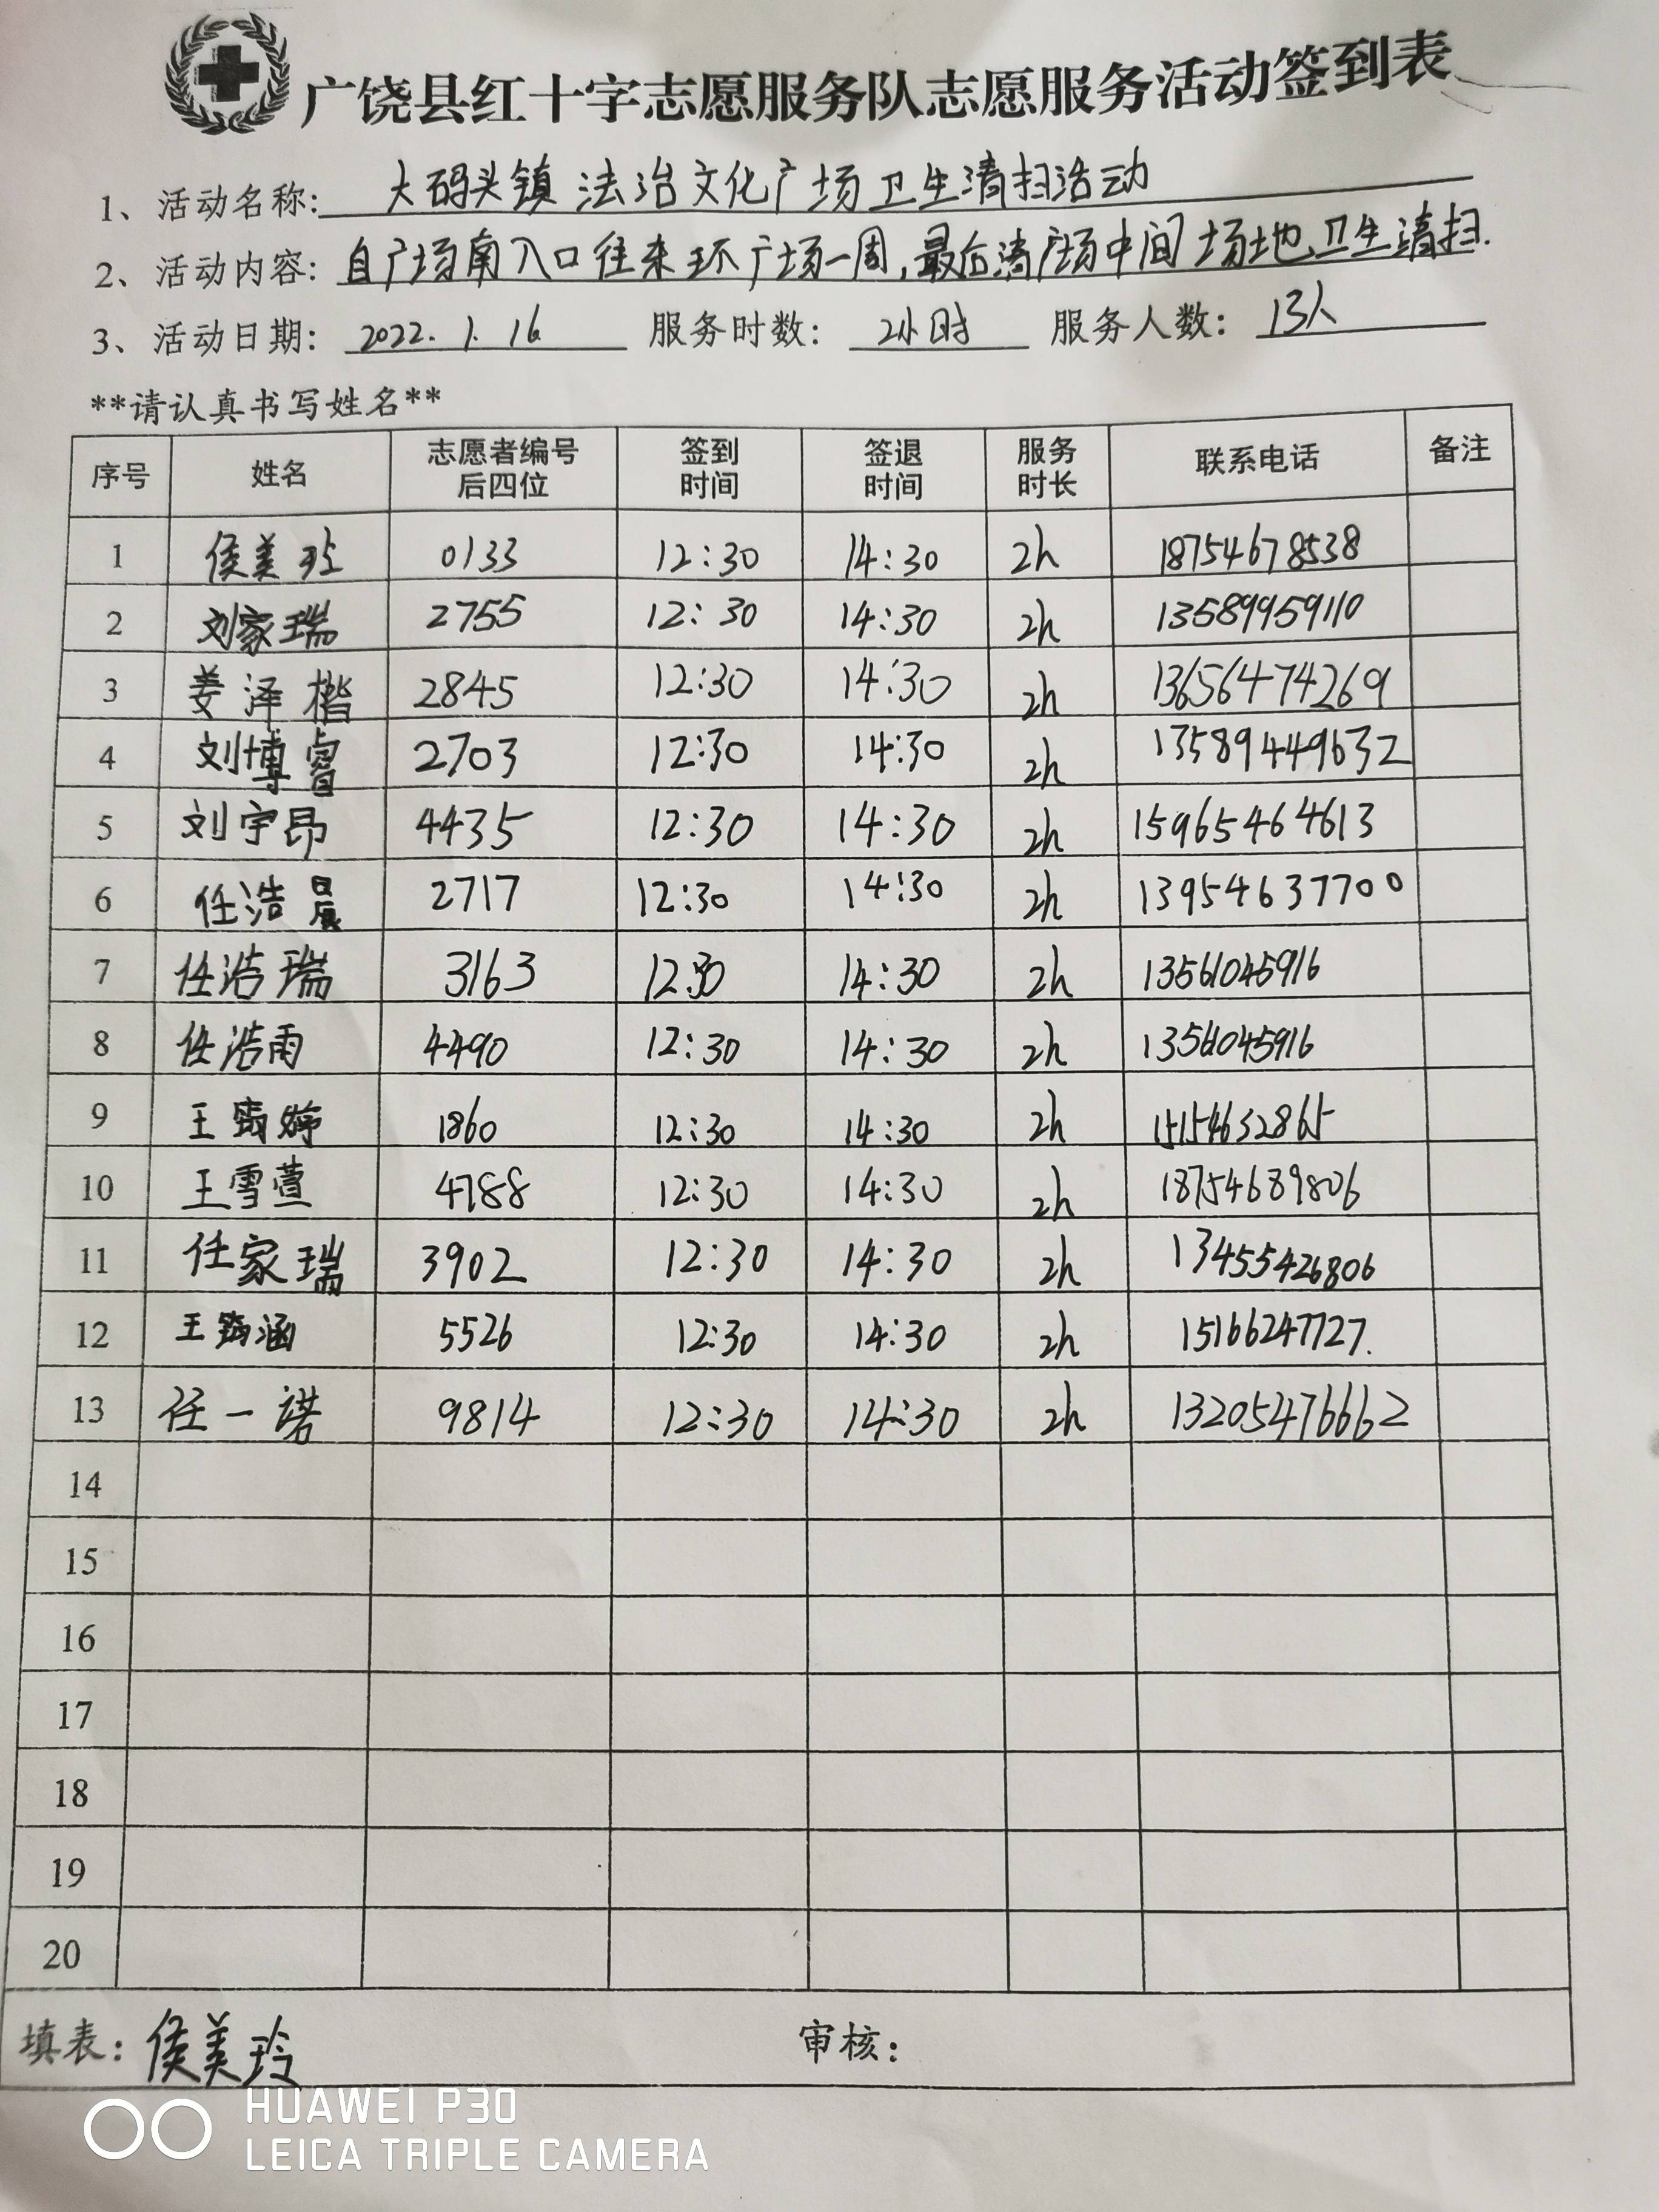 广饶县红十字志愿服务队志愿服务活动签到表
1、活动名称: 大码头镇法治文化广场卫生清扫活动
2、活动内容: 自广场南入口往来环广场一周,最后清广场中间场地卫生清扫.
3、活动日期: 2022.1.16 服务时数: 2小时 服务人数: 13人
**请认真书写姓名**
序号 姓名 志愿者编号后四位 签到时间 签退时间 服务时长 联系电话 备注
1 侯美玲 0133 12:30 14:30 2h 18754678538
2 刘家瑞 2755 12:30 14:30 2h 13589959110
3 姜泽楷 2845 12:30 14:30 2h 13656474269
4 刘博睿 2703 12:30 14:30 2h 13589449632
5 刘宇昂 4435 12:30 14:30 2h 15965464613
6 任浩晨 2717 12:30 14:30 2h 13954637700
7 任浩瑞 3163 12:30 14:30 2h 13561045916
8 任浩雨 4490 12:30 14:30 2h 13561045916
9 王婷 1860 12:30 14:30 2h 15154632865
10 王雪萱 4788 12:30 14:30 2h 18754689806
11 任家瑞 3902 12:30 14:30 2h 13455426806
12 王涵 5526 12:30 14:30 2h 15166247727.
13 任一诺 9814 12:30 14:30 2h 13205476662
14
15
16
17
18
19
20
填表: 侯美玲 审核:
HUAWEI P30
LEICA TRIPLE CAMERA